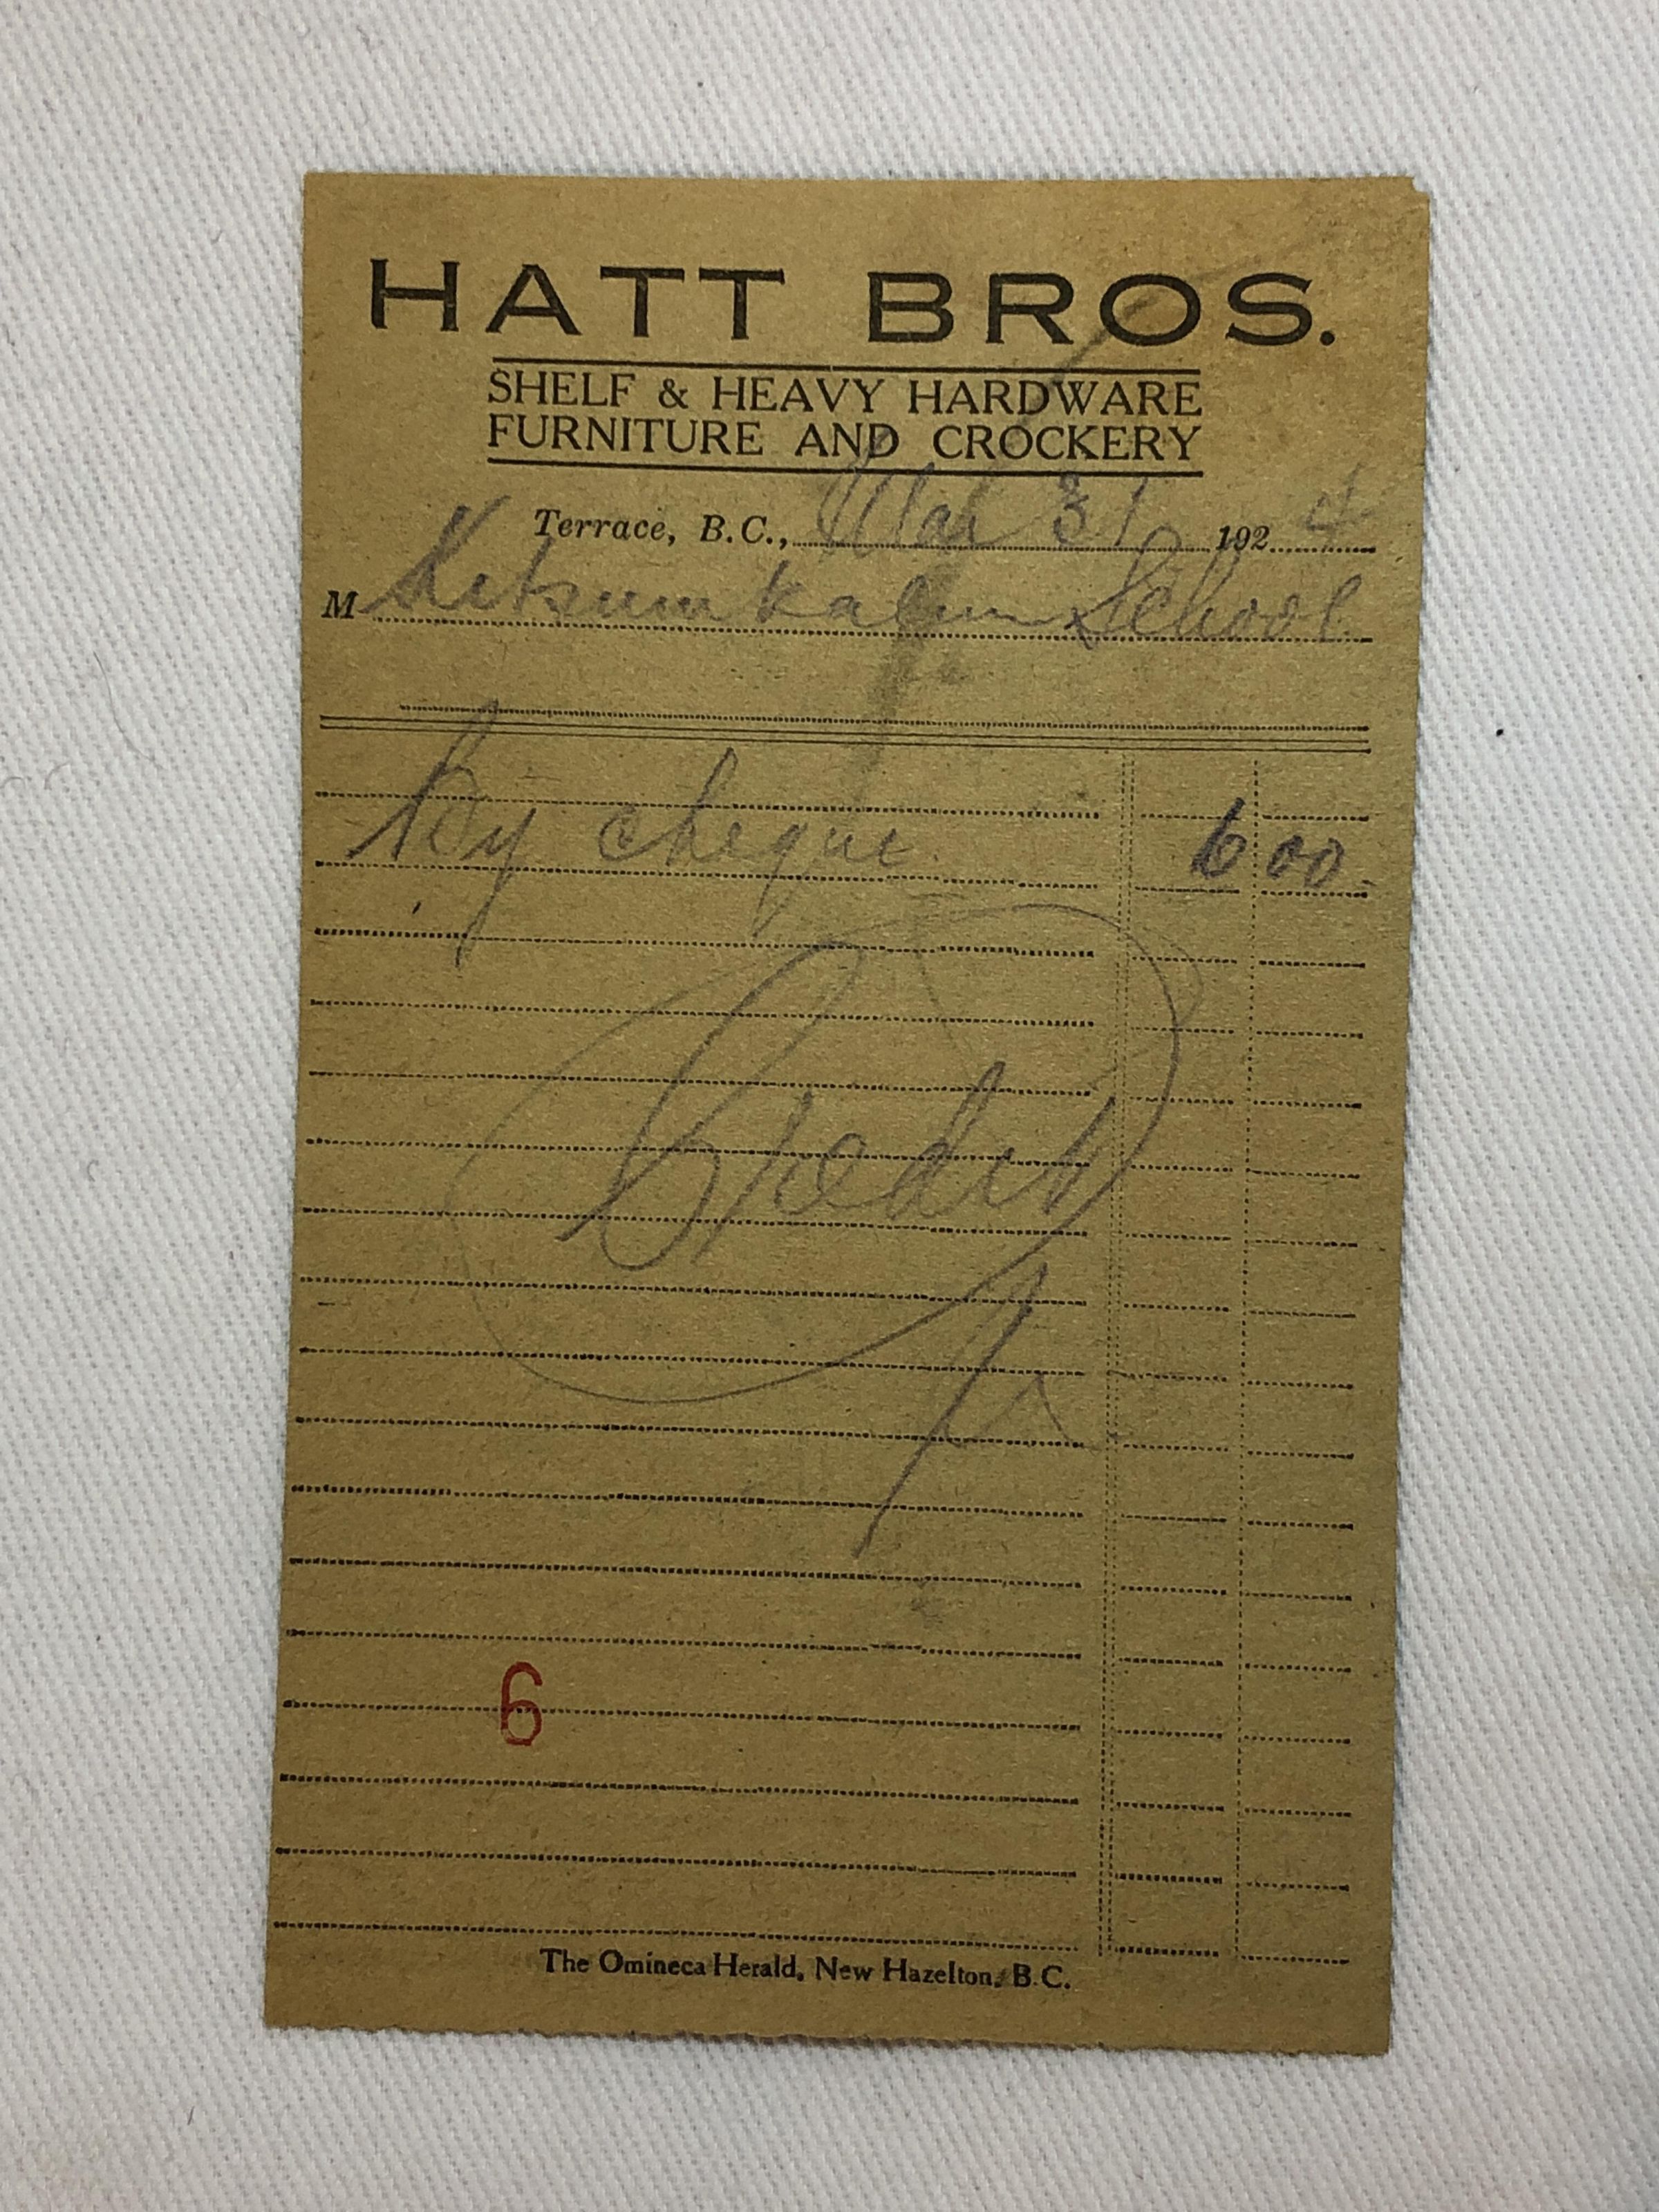 HATT BROS.
SHELF & HEAVY HARDWARE
FURNITURE AND CROCKERY
Terrace, B.C., Mar 31 1924
M Kitsumkalum School
By cheque 6 00
Credit
6
The Omineca Herald, New Hazelton, B.C.